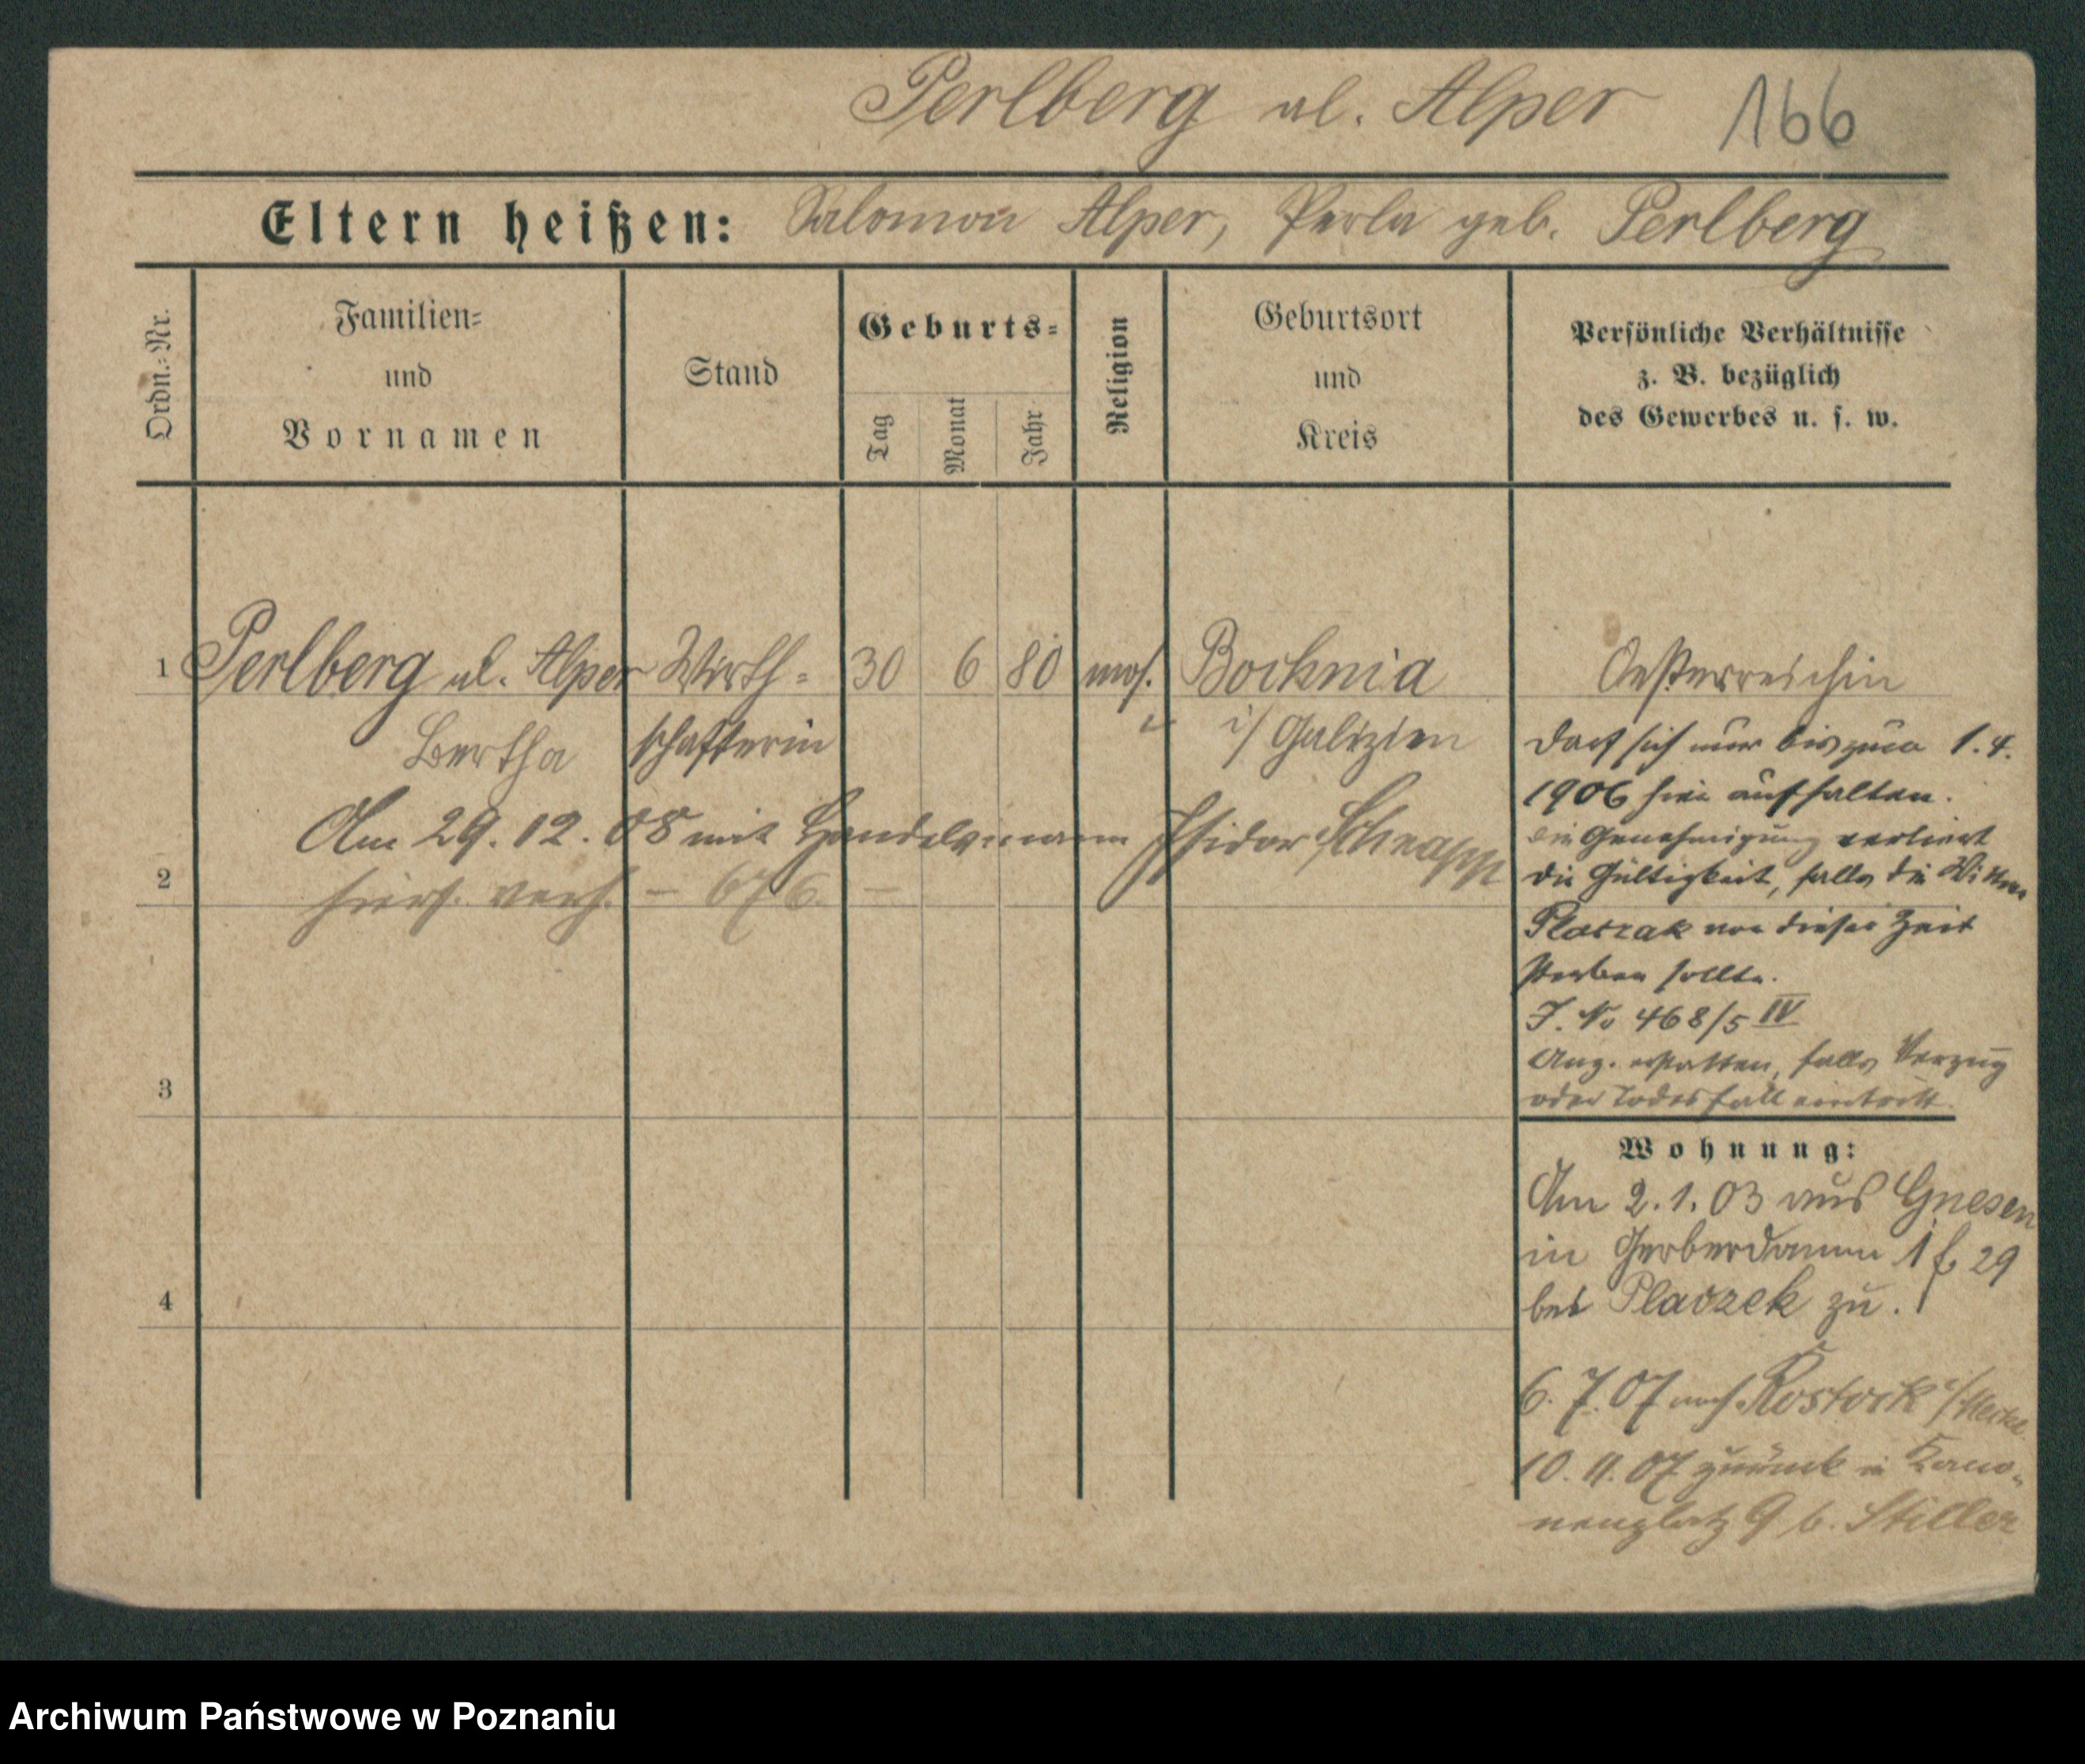 Perlberg al. Alper 166
Eltern heißen: Salomon Alper, Perla geb. Perlberg
Ordn.-Nr.
Familien-
und
Vornamen
Stand
Geburts-
Tag
Monat
Jahr
Religion
Geburtsort
und
Kreis
Persönliche Verhältnisse
z. B. bezüglich
des Gewerbes u. s. w.
1 Perlberg al. Alper Wirth- 30 6 80 mos. Bochnia Oesterreichin
Bertha schafterin i/ Galizien
Am 29. 12. 08 mit Handelsmann Isidor Schnapp
hiers. verh. – 676. –
2
3
4
Darf sich nur bis zum 1. 4.
1906 hier aufhalten.
Die Genehmigung verliert
die Gültigkeit, falls die Witwe
Placzek vor dieser Zeit
sterben sollte.
J. No 468/5 IV
Anz. erstatten, falls Verzug
oder Todesfall eintritt.
Wohnung:
Am 2.1.03 aus Gnesen
in Gerberdamm 1 f. 29
bei Placzek zu.
6. 7. 07 nach Rostock i/Meckl.
10. 11. 07 zurück in Kano-
nenplatz 9 b. Stiller
Archiwum Państwowe w Poznaniu